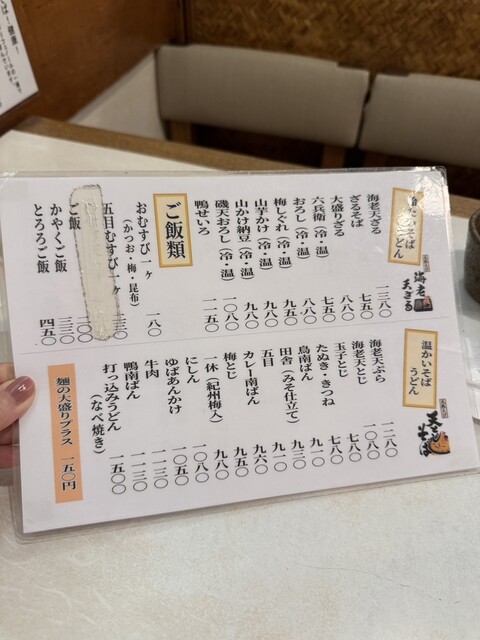 そば
うどん
海老
天ざる
海老天ざる 一三八〇
ざるそば 七五〇
大盛りざる 八八〇
六兵衛（冷・温） 七五〇
おろし（冷・温） 八八〇
梅しぐれ（冷・温） 九五〇
山芋かけ（冷・温） 九八〇
山かけ納豆（冷・温） 九八〇
磯天おろし（冷・温） 一〇八〇
鴨せいろ 一一五〇
ご飯類
おむすび一ヶ 一八〇
（かつお・梅・昆布）
五目むすび一ヶ
ご飯
かやくご飯 三三〇
とろろご飯 四五〇
温かいそば
うどん
天ぷらそば
海老天ぷら 一二八〇
海老天とじ 一〇八〇
玉子とじ 七八〇
たぬき・きつね 七八〇
鳥南ばん 九一〇
田舎（みそ仕立て） 九三〇
五目 九一〇
カレー南ばん 九六〇
梅とじ 九五〇
一休（紀州梅入） 九八〇
にしん 一〇八〇
ゆばあんかけ 一〇五〇
牛肉 一一三〇
鴨南ばん 一一三〇
打っ込みうどん 一五〇〇
（なべ焼き）
麺の大盛りプラス 一五〇円